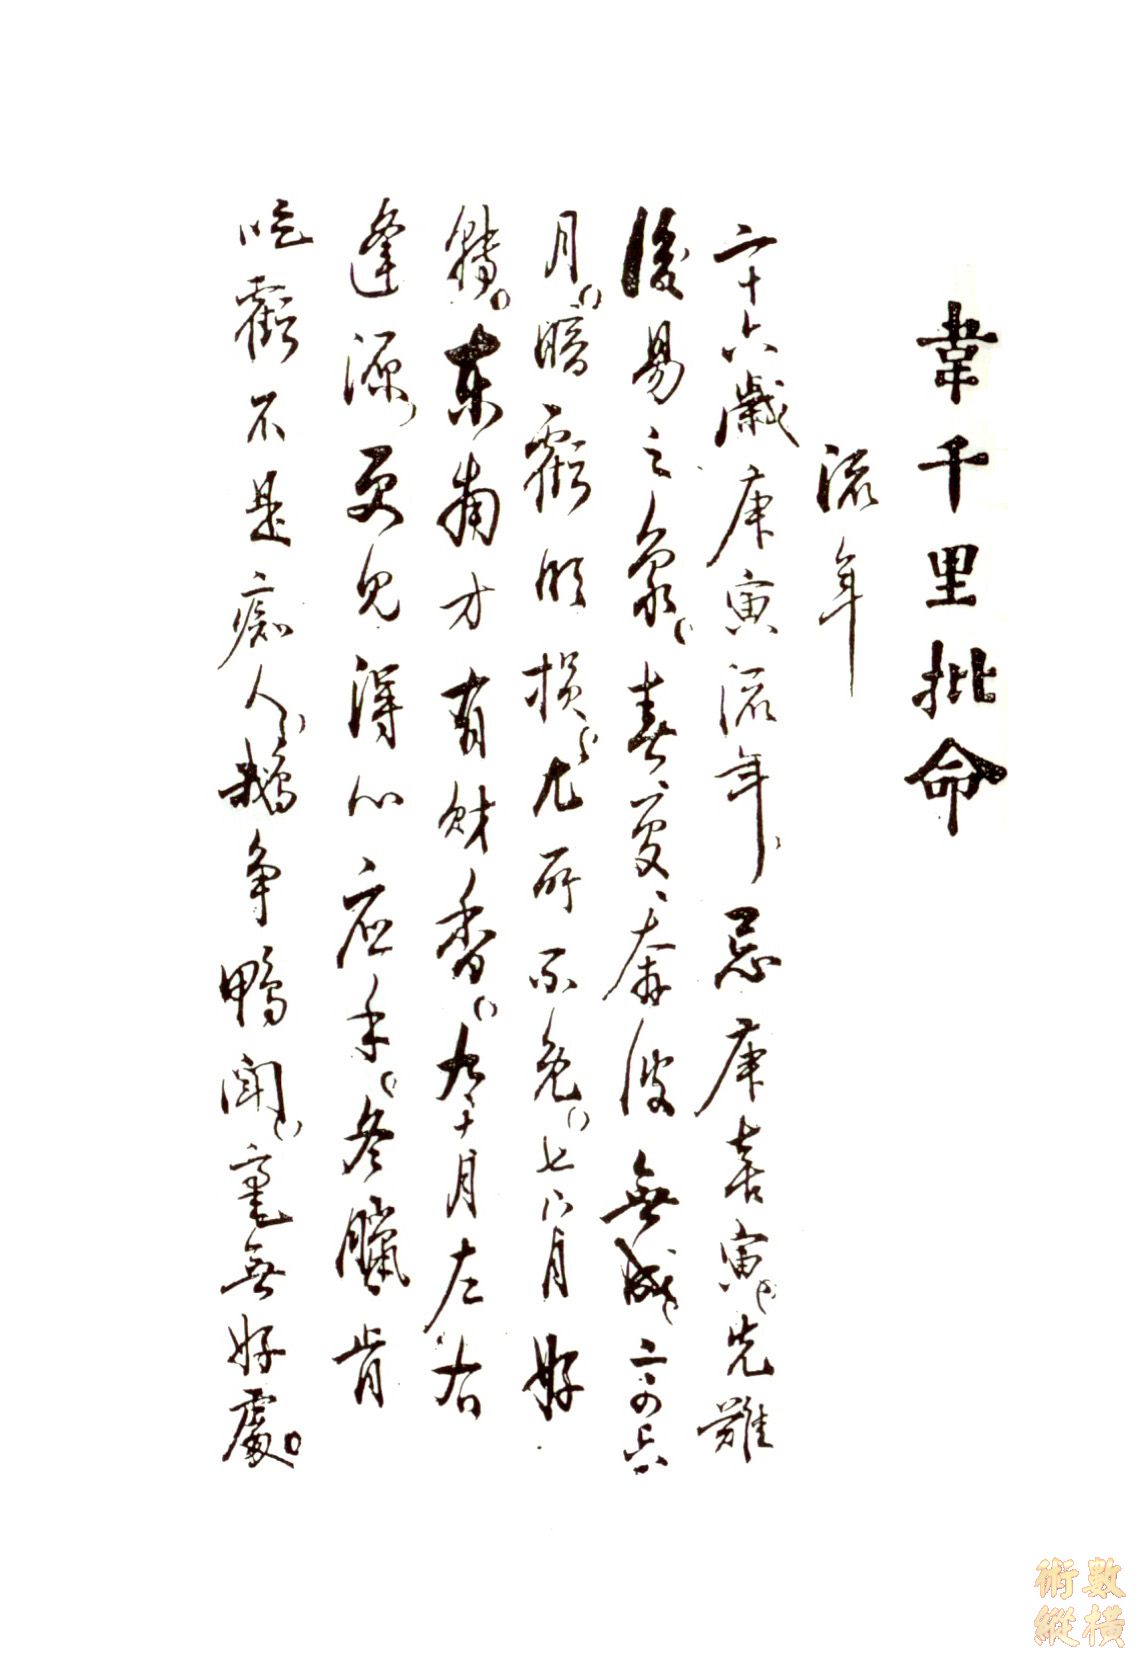 韋千里批命
流年
二十六歲庚寅流年,忌庚喜寅,先難
後易之象。春夏奔波無成,二六
月。暗虧明損,尤所不免。七八月好
轉。東南方有財香。九十月左右
逢源,更見得心应手。冬臘肯
吃虧不是痴人,鵝爭鴨鬧,毫無好處。
術數
縱橫